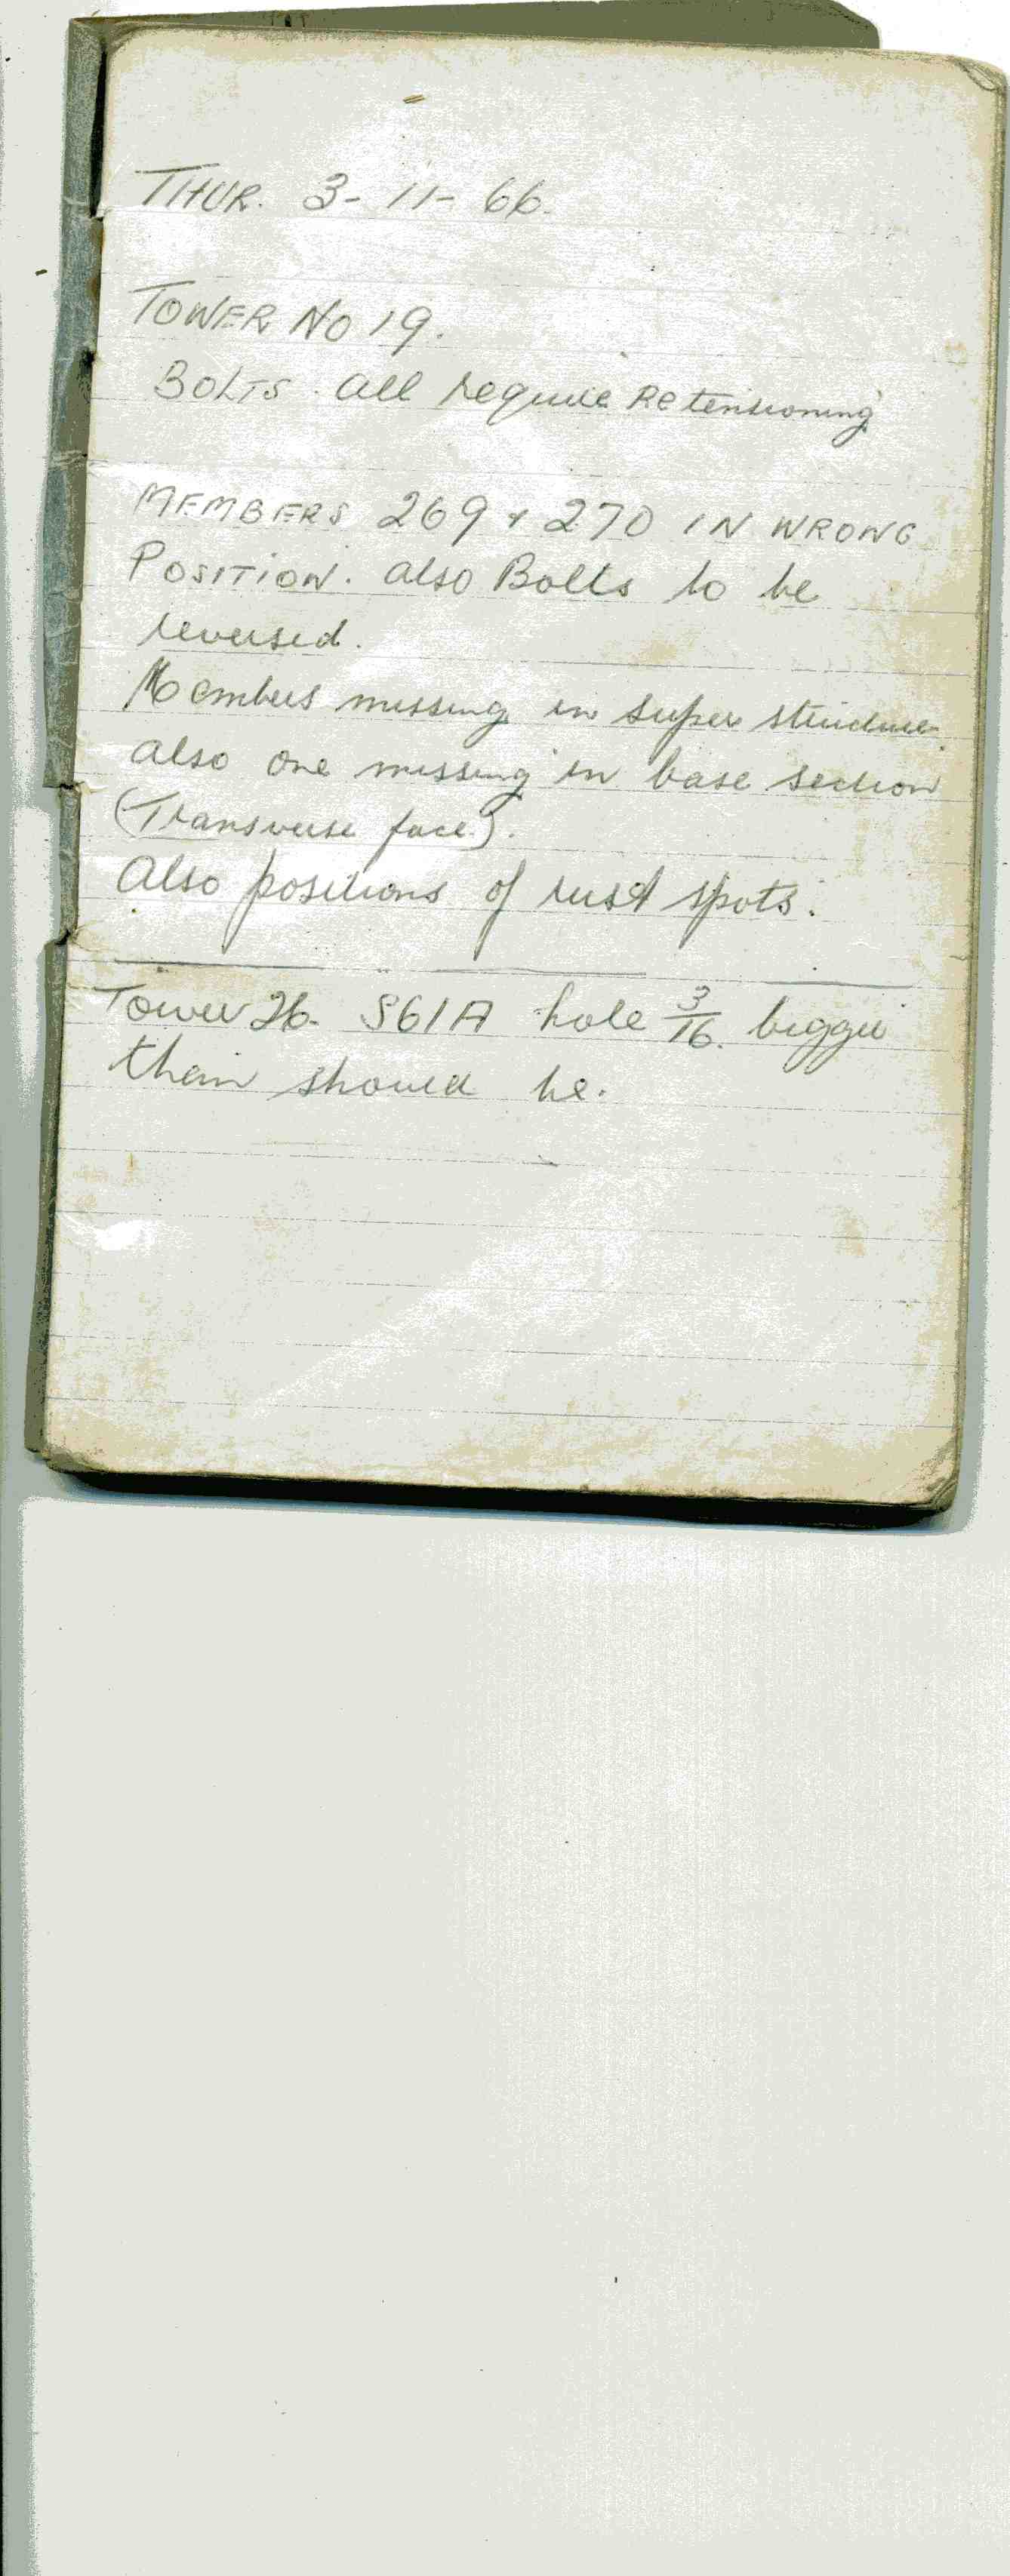 THUR. 3-11-66.
TOWER NO 19.
BOLTS. all require Retensioning
MEMBERS 269 + 270 IN WRONG
POSITION. also Bolts to be
reversed.
Members missing in super structure.
also one missing in base section
(Transverse face).
Also positions of rust spots.
Tower 26. S61A hole 3/16. bigger
than should be.